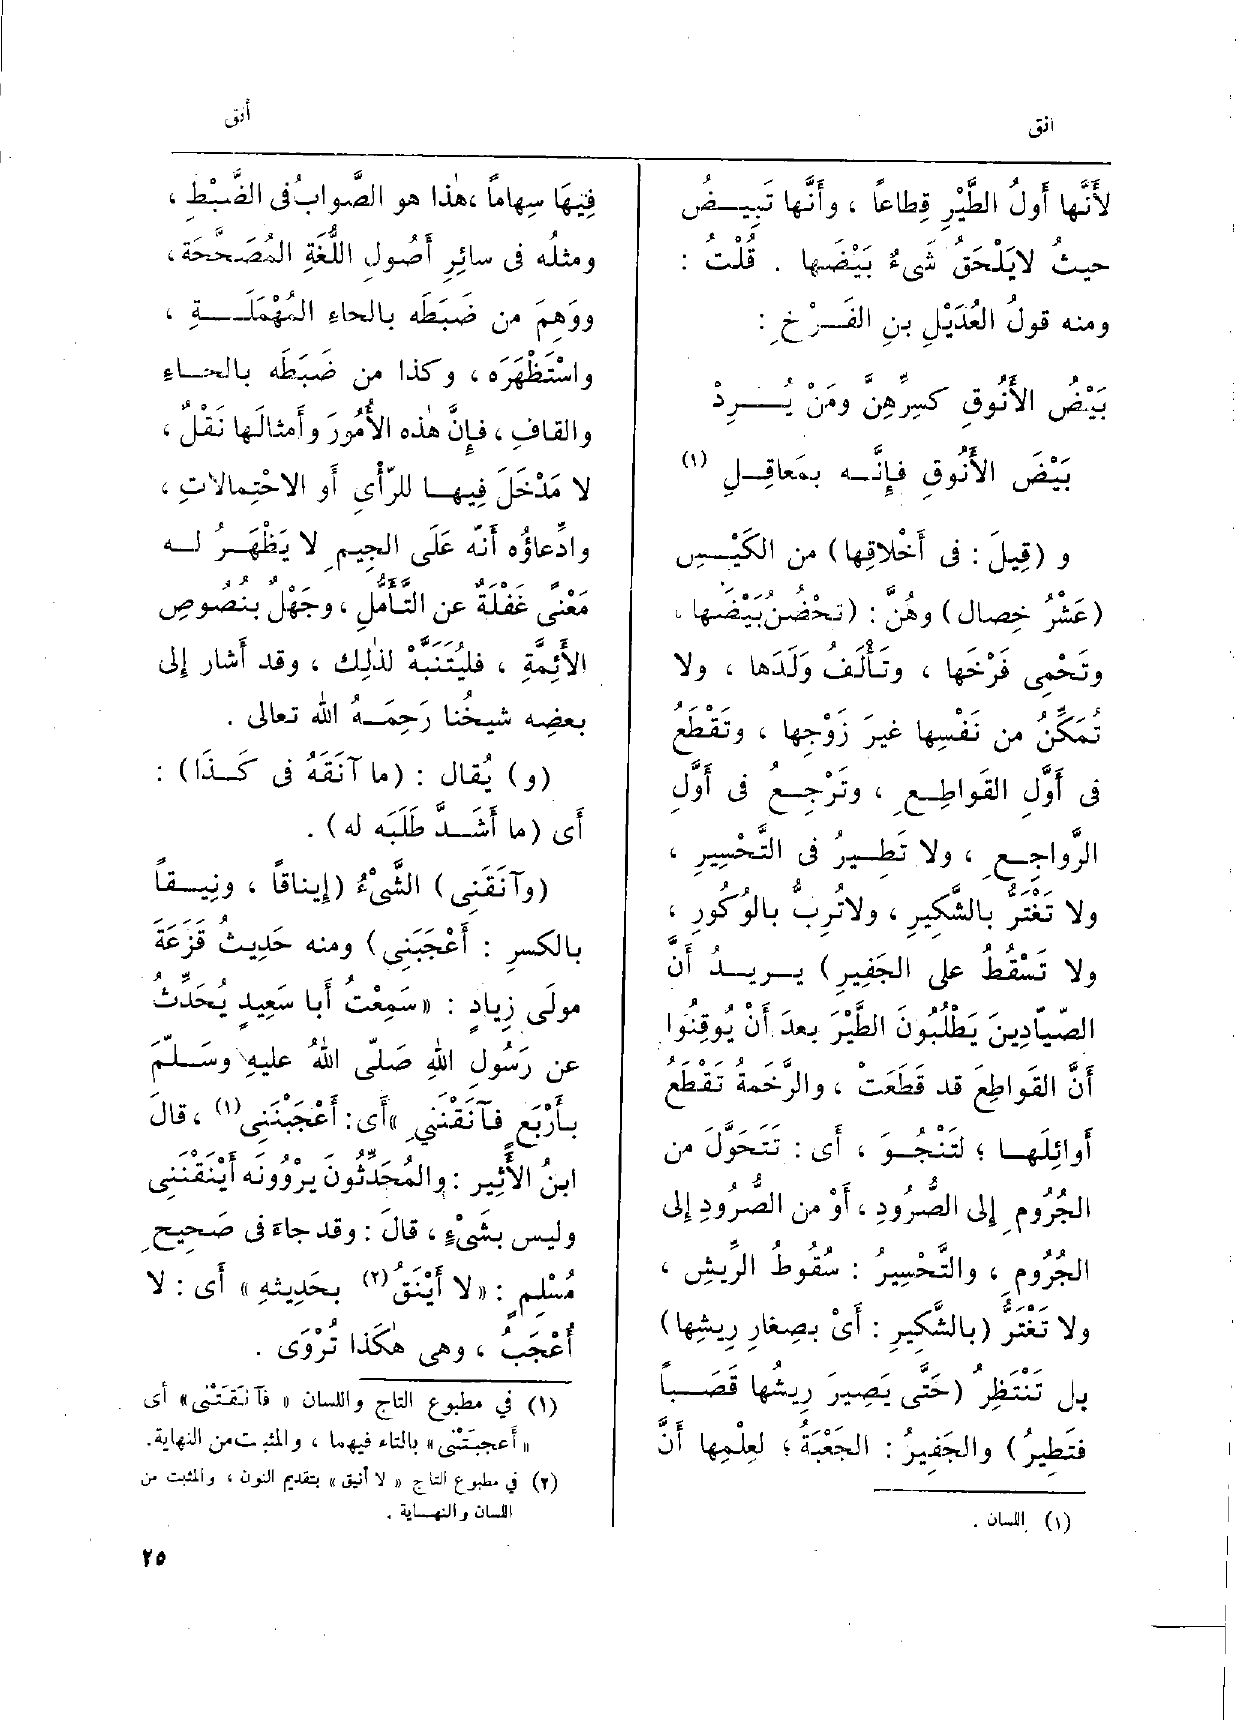 انق
أنق
لأَنَّها أَولُ الطَّيْرِ قِطاعاً ، وأَنَّها تَبِيــضُ
حيثُ لايَلْحَقُ شىءٌ بَيْضَها . قُلْتُ :
ومنه قولُ العُدَيْلِ بنِ الفَــرْخِ :
بَيْضُ الأَنُوقِ كسِرِّهِنَّ ومَنْ يُــــرِدْ
بَيْضَ الأَنُوقِ فإِنَّــه بمَعاقِــلِ (١)
و (قِيلَ : فى أَخْلاقِها) من الكَيْــسِ
(عَشْرُ خِصال) وهُنَّ : (تَحْضُن بَيْضَها ،
وتَحْمِى فَرْخَها ، وتَأْلَفُ وَلَدَها ، ولا
تُمَكِّنُ من نَفْسِها غيرَ زَوْجِها ، وتَقْطَعُ
فى أَوَّلِ القَواطِــعِ ، وتَرْجِــعُ فى أَوَّلِ
الرَّواجِــعِ ، ولا تَطِــيرُ فى التَّحْسِيرِ ،
ولا تَغْتَرُّ بالشَّكِيرِ ، ولاتُرِبُّ بالوُكُورِ ،
ولا تَسْقُطُ على الجَفِيرِ) يــريــدُ أَنَّ
الصّيّادِينَ يَطْلُبُونَ الطَّيْرَ بعدَ أَنْ يُوقِنُوا
أَنَّ القَواطِعَ قد قَطَعَتْ ، والرَّخَمةُ تَقْطَعُ
أَوائِلَهــا ؛ لتَنْجُــوَ ، أَى : تَتَحَوَّلَ من
الجُرُومِ إِلى الصُّرُودِ ، أَوْ من الصُّرُودِ إِلى
الجُرُومِ ، والتَّحْسِيرُ : سُقُوطُ الرِّيشِ ،
ولا تَغْتَرُّ (بالشَّكِيرِ : أَىْ بصِغارِ رِيشِها)
بل تَنْتَظِرُ (حَتَّى يَصِيرَ رِيشُها قَصَبــاً
فتَطِيرُ) والجَفِيرُ : الجَعْبَةُ ؛ لعِلْمِها أَنَّ
(١) اللسان .
فِيهَا سِهاماً ، هٰذا هو الصَّوابُ فى الضَّبْطِ ،
ومثلُه فى سائِرِ أُصُولِ اللُّغَةِ المُصَحَّحَة ،
ووَهِمَ من ضَبَطَه بالحاءِ المُهْمَلَــــةِ ،
واسْتَظْهَرَه ، وكذا من ضَبَطَه بالحــاءِ
والقافِ ، فإِنَّ هٰذه الأُمُورَ وأَمثالَها نَقْلٌ ،
لا مَدْخَلَ فِيهــا للرَّأْىِ أَو الاحْتِمالاتِ ،
وادِّعاؤُه أَنّه عَلَى الجِيمِ لا يَظْهَــرُ لــه
مَعْنًى غَفْلَةٌ عن التَّأَمُّلِ ، وجَهْلٌ بنُصُوصِ
الأَئِمَّةِ ، فليُتَنَبَّهْ لذٰلِك ، وقد أَشار إِلى
بعضِه شيخُنا رَحِمَــهُ اللهُ تعالى .
(و) يُقال : (ما آنَقَهُ فى كَــذَا) :
أَى (ما أَشَــدَّ طَلَبَه له) .
(وآنَقَنِى) الشَّىْءُ (إِيناقاً ، ونِيــقاً
بالكسرِ : أَعْجَبَنِى) ومنه حَدِيثُ قَزَعَةَ
مولَى زِيادٍ : «سَمِعْتُ أَبا سَعِيدٍ يُحَدِّثُ
عن رَسُولِ اللهِ صَلّى اللهُ عليهِ وسَــلَّمَ
بأَرْبَعٍ فآنَقْنَنِي» أَى : أَعْجَبْنَنِى (١) ، قالَ
ابنُ الأَثِيرِ : والمُحَدِّثُون يرْوُونَه أَيْنَقْنَنِى
وليس بشَىْءٍ ، قالَ : وقد جاءَ فى صَحِيحِ
مُسْلِمٍ : «لا أَيْنَقُ (٢) بحَدِيثِهِ» أَى : لا
أَعْجَبُ ، وهى هٰكَذا تُرْوَى .
(١) في مطبوع التاج واللسان «فآنَقَتْنى» أى
«أعجبَتْنى» بالتاء فيهما ، والمثبت من النهاية.
(٢) في مطبوع التاج «لا أنيق» بتقديم النون ، والمثبت من
اللسان والنهــاية .
٢٥